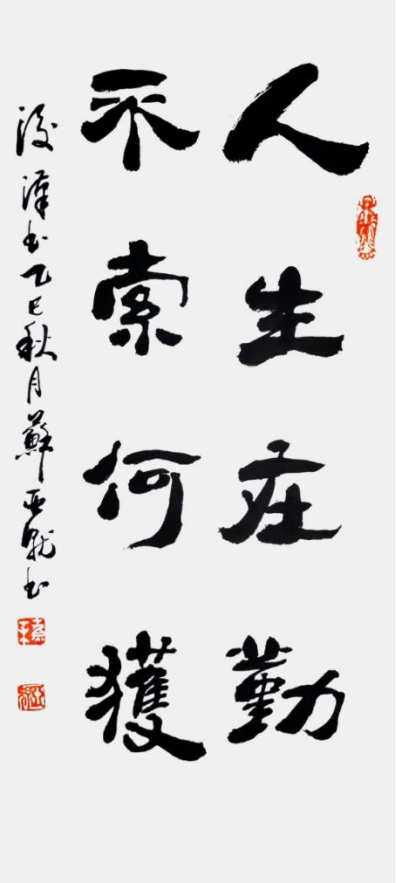 人生在勤
不索何獲
後漢书乙巳秋月蘇亞书